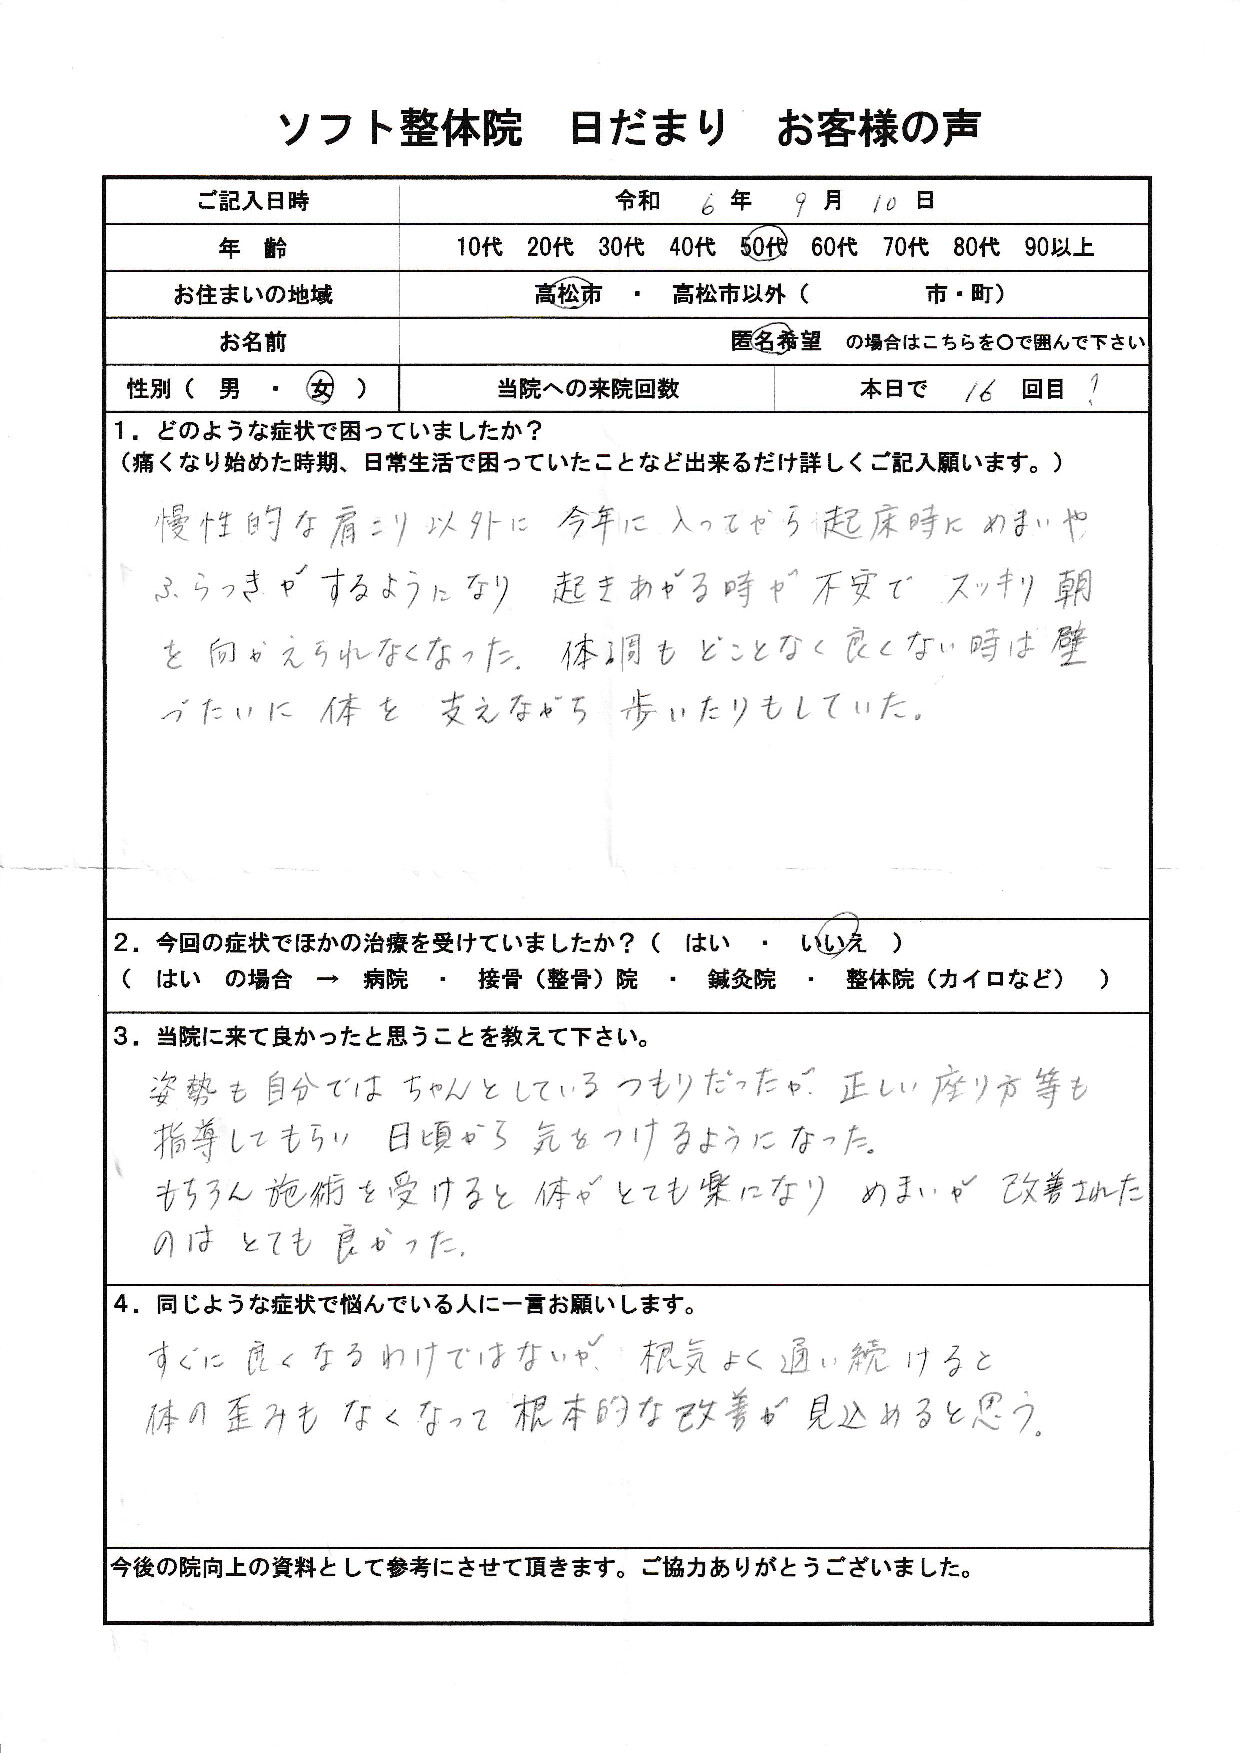 ソフト整体院　日だまり　お客様の声
ご記入日時　令和　6　年　9　月　10　日
年　齢　10代　20代　30代　40代　50代　60代　70代　80代　90以上
お住まいの地域　高松市　・　高松市以外（　　　　　市・町）
お名前　匿名希望　の場合はこちらを〇で囲んで下さい
性別（　男　・　女　）　当院への来院回数　本日で　16　回目　？
１．どのような症状で困っていましたか？
（痛くなり始めた時期、日常生活で困っていたことなど出来るだけ詳しくご記入願います。）
慢性的な肩こり以外に 今年に入ってから起床時にめまいや
ふらつきがするようになり 起きあがる時が不安で スッキリ朝
を向かえられなくなった。体調もどことなく良くない時は壁
づたいに体を支えながら歩いたりもしていた。
２．今回の症状でほかの治療を受けていましたか？（　はい　・　いいえ　）
（　はい　の場合　→　病院　・　接骨（整骨）院　・　鍼灸院　・　整体院（カイロなど）　）
３．当院に来て良かったと思うことを教えて下さい。
姿勢も自分ではちゃんとしているつもりだったが、正しい座り方等も
指導してもらい 日頃から気をつけるようになった。
もちろん施術を受けると体がとても楽になり めまいが改善された
のはとても良かった。
４．同じような症状で悩んでいる人に一言お願いします。
すぐに良くなるわけではないが、根気よく通い続けると
体の歪みもなくなって根本的な改善が見込めると思う。
今後の院向上の資料として参考にさせて頂きます。ご協力ありがとうございました。